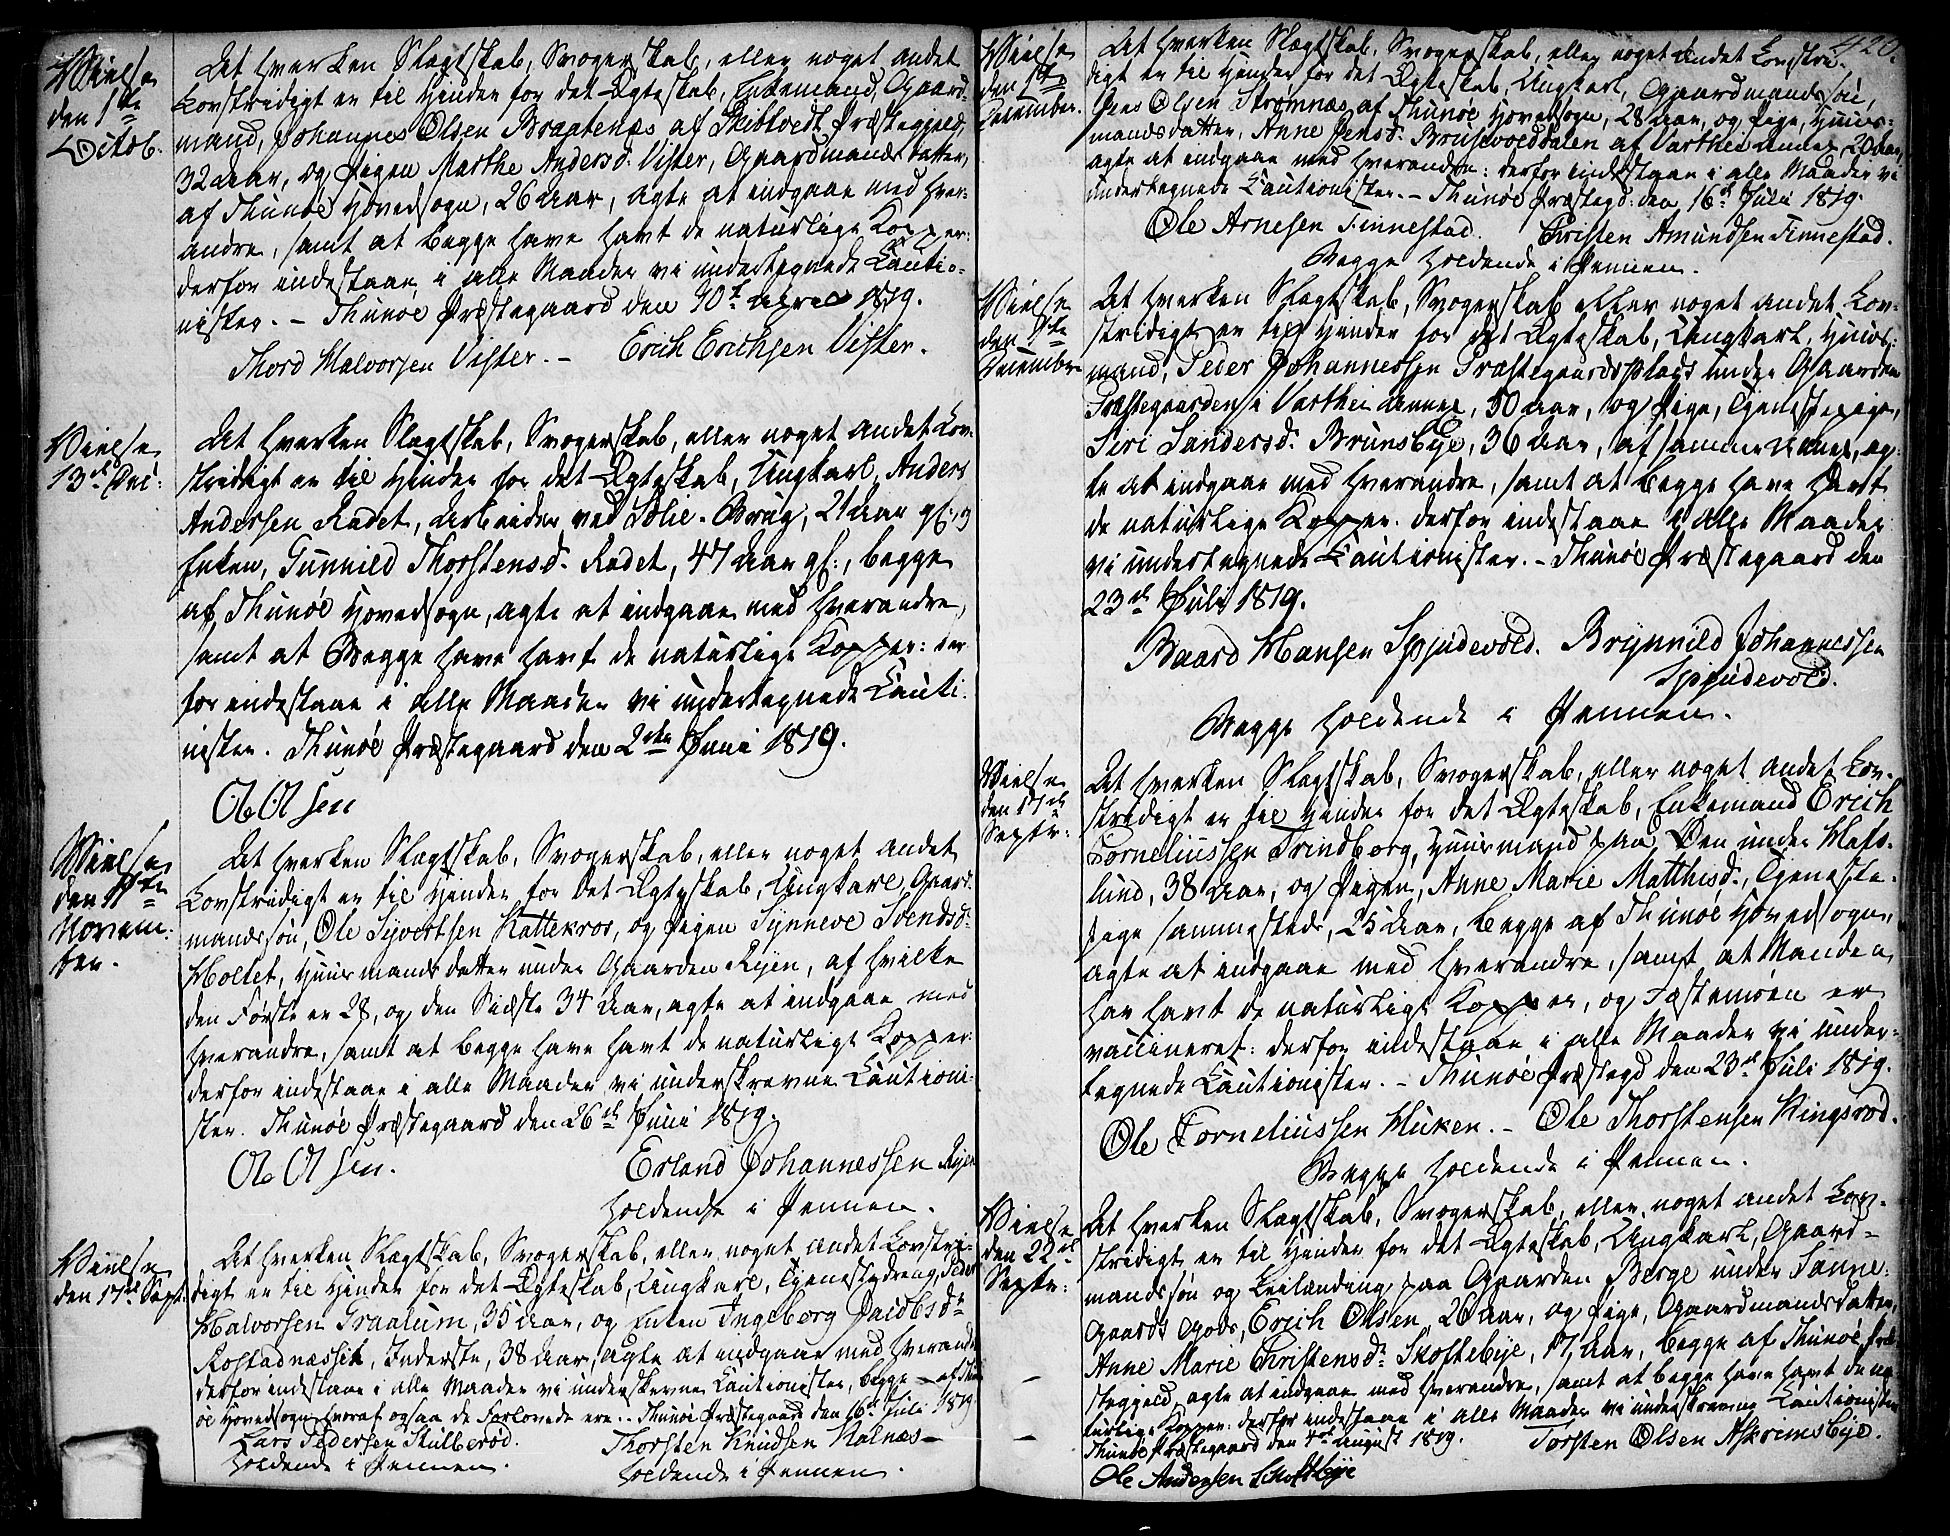 Vielse
den 1ste
Octob.
At hverken Slægtskab, Svogerskab, eller noget andet
Lovstridigt er til Hinder for det Ægteskab, Enkemand, Gaard-
mand, Johannes Olsen Braatenæs af Skibtvedt Præstegjeld,
32 Aar, og Pigen Marthe Andersd. Vister, Gaardmands datter,
af Thunøe Hovedsogn, 26 Aar, agte at indgaae med hver-
andre, samt at begge have havt de naturlige Kopper:
derfor indestaae i alle Maader vi undertegnede Cautio-
nister. - Thunøe Præstegaard den 30te April 1819.
Thord Halvorsen Vister. - Erich Erichsen Vister.
Vielse
13de Dec:
At hverken Slægtskab, Svogerskab, eller noget andet Lov-
stridigt er til Hinder for det Ægteskab, Ungkarl Anders
Andersen Rødet, Arbeider ved Solie-Brug, 21 Aar gl: og
Enken, Gunnild Thorstensd. Rødet, 47 Aar gl:, begge
af Thunøe Hovedsogn, agte at indgaae med hverandre,
samt at Begge have havt de naturlige Kopper: der
for indestaae i alle Maader vi undertegnede Cauti-
nister. Thunøe Præstegaard den 2den Juni 1819.
Ole Olsen
Vielse
den 11te
Novem-
ber.
At hverken Slægtskab, Svogerskab, eller noget andet
Lovstridigt er til Hinder for det Ægteskab, Ungkarl Gaard-
mandssøn, Ole Syvertsen Kattekror, og Pigen Synneve Svendsd:
Holtet, Huusmands datter under Gaarden Ryen, af hvilke
den Første er 28, og den Sidste 34 Aar, agte at indgaae med
hverandre, samt at begge have havt de naturlige Kopper:
derfor indestaae i alle Maader vi underskrevne Cautioni-
ster. Thunøe Præstegaard den 26de Juni 1819.
Ole Olsen. Erland Johannessen Ryen
holdende i Pennen.
Vielse
den 17de Sept:
At hverken Slægtskab, Svogerskab, eller noget andet Lovstri-
digt er til Hinder for det Ægteskab, Ungkarl, Tjenestedreng, Peder
Halvorsen Graalum, 35 Aar, og Enken Ingeborg Jacobsdr
Rostadnæssit, Inderste, 38 Aar, agte at indgaae med hverandre
derfor indestaae i alle Maader vi underskrevne Cautionister, begge af Thun-
øe Hovedsogn hvoraf ogsaa de Forlovede ere. - Thunøe Præstegaard den 16de Juli 1819
Lars Pedersen Kulberød. Thorsten Knudsen Kalnæs -
holdende i Pennen. holdende i Pennen.
420.
Vielse
den 1ste
December.
At hverken Slægtskab, Svogerskab, eller noget Andet Lovstri-
digt er til Hinder for det Ægteskab, Ungkarl, Gaardmandssøn,
Jens Olsen Strømnæs af Thunøe Hovedsogn, 28 Aar, og Pige, Huus-
mandsdatter, Anne Jensd. Brusevoldbalen af Varthei Annex, 20 Aar,
agte at indgaae med hverandre: derfor indestaae i alle Maader vi
undertegnede Cautionister. - Thunøe Præstegd: den 16de Juli 1819.
Ole Arnesen Finnestad. Christen Amundsen Finnestad.
Begge holdende i Pennen.
Vielse
den 1ste
December
At hverken Slægtskab, Svogerskab eller noget andet Lov-
stridigt er til Hinder for det Ægteskab, Ungkarl, Huus-
mand, Peder Johannessen Præstegaardsplads under Gaarden
Præstegaarden i Varthei Annex, 50 Aar, og Pige, Tjenestepige,
Siri Sandersd. Brunsbye, 36 Aar, af samme Annex, ag-
te at indgaae med hverandre, samt at begge have havt
de naturlige Kopper. derfor indestaae i alle Maader
vi undertegnede Cautionister. - Thunøe Præstegaard den
23de Juli 1819.
Baard Hansen Spjudevold. Brynnild Johannessen
Spjudevold.
Begge holdende i Pennen.
Vielse
den 17de
Septr:
At hverken Slægtskab, Svogerskab, eller noget andet Lov-
stridigt er til Hinder for det Ægteskab, Enkemand Erich
Corneliussen Trindborg, Huusmand paa Øen under Hafs-
lund, 38 Aar, og Pigen, Anne Marie Matthisd., Tjeneste-
pige sammesteds, 25 Aar, begge af Thunøe Hovedsogn,
agte at indgaae med hverandre, samt at Manden
har havt de naturlige Kopper, og Fæstemøen er
vaccineret: derfor indestaae i alle Maader vi under-
tegnede Cautionister. - Thunøe Præstegd den 23de Juli 1819.
Ole Corneliussen Huken. - Ole Thorstensen Kingsrød.
Begge holdende i Pennen.
Vielse
den 22de
Septr:
At hverken Slægtskab, Svogerskab, eller noget andet Lov-
stridigt er til Hinder for det Ægteskab, Ungkarl, Gaard-
mandssøn og Leilænding paa Gaarden Berge under Sanne-
Gaards Gods, Erich Olsen, 26 Aar, og Pige, Gaardmandsdatter,
Anne Marie Christensdr. Skoftebye, 17 Aar, begge af Thunøe Præ-
stegjeld, agte at indgaae med hverandre, samt at begge have havt de na-
turlige Kopper: derfor indestaae i alle Maader vi underskrevne Cautionister
Thunøe Præstegaard den 4de August 1819. Torsten Olsen Askrimsbye.
Ole Andersen Skoftbye